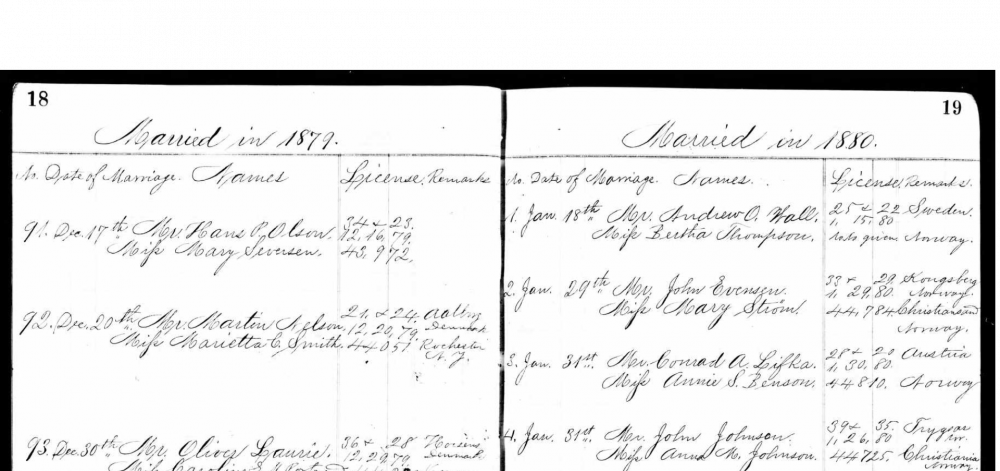 18
Married in 1879.
No. Date of Marriage. Names License. Remarks
91. Dec. 17th Mr. Hans P. Olson. 34 & 23. 12, 16, 79,
Miss Mary Seversen. 43, 972,
92. Dec. 20th Mr. Martin Nelson. 21, & 24. 12, 20, 79, Aalborg Denmark
Miss Marietta C. Smith. 44051 Rochester N.Y.
93. Dec. 30th Mr. Oliver Laurie. 36 & 28 12, 29, 79 Horsens Denmark
Miss Caroline
19
Married in 1880.
No. Date of Marriage. Names. License. Remarks.
1. Jan. 18th Mr. Andrew O. Hall. 25 & 22 1, 15, 80 Sweden.
Miss Bertha Thompson. No given. Norway.
2. Jan. 29th Mr. John Evensen. 33 & 29. 1, 29. 80. Kongsberg Norway.
Miss Mary Strøm. 44,784 Christiansand Norway.
3. Jan. 31st. Mr. Conrad A. Lifka. 28 & 20 1, 30. 80. Austria
Miss Annie S. Benson. 44810. Norway
4. Jan. 31st. Mr. John Johnson. 39 & 35. 1, 26, 80
Miss Anna M. Johnson. 44725. Christiania Norway.